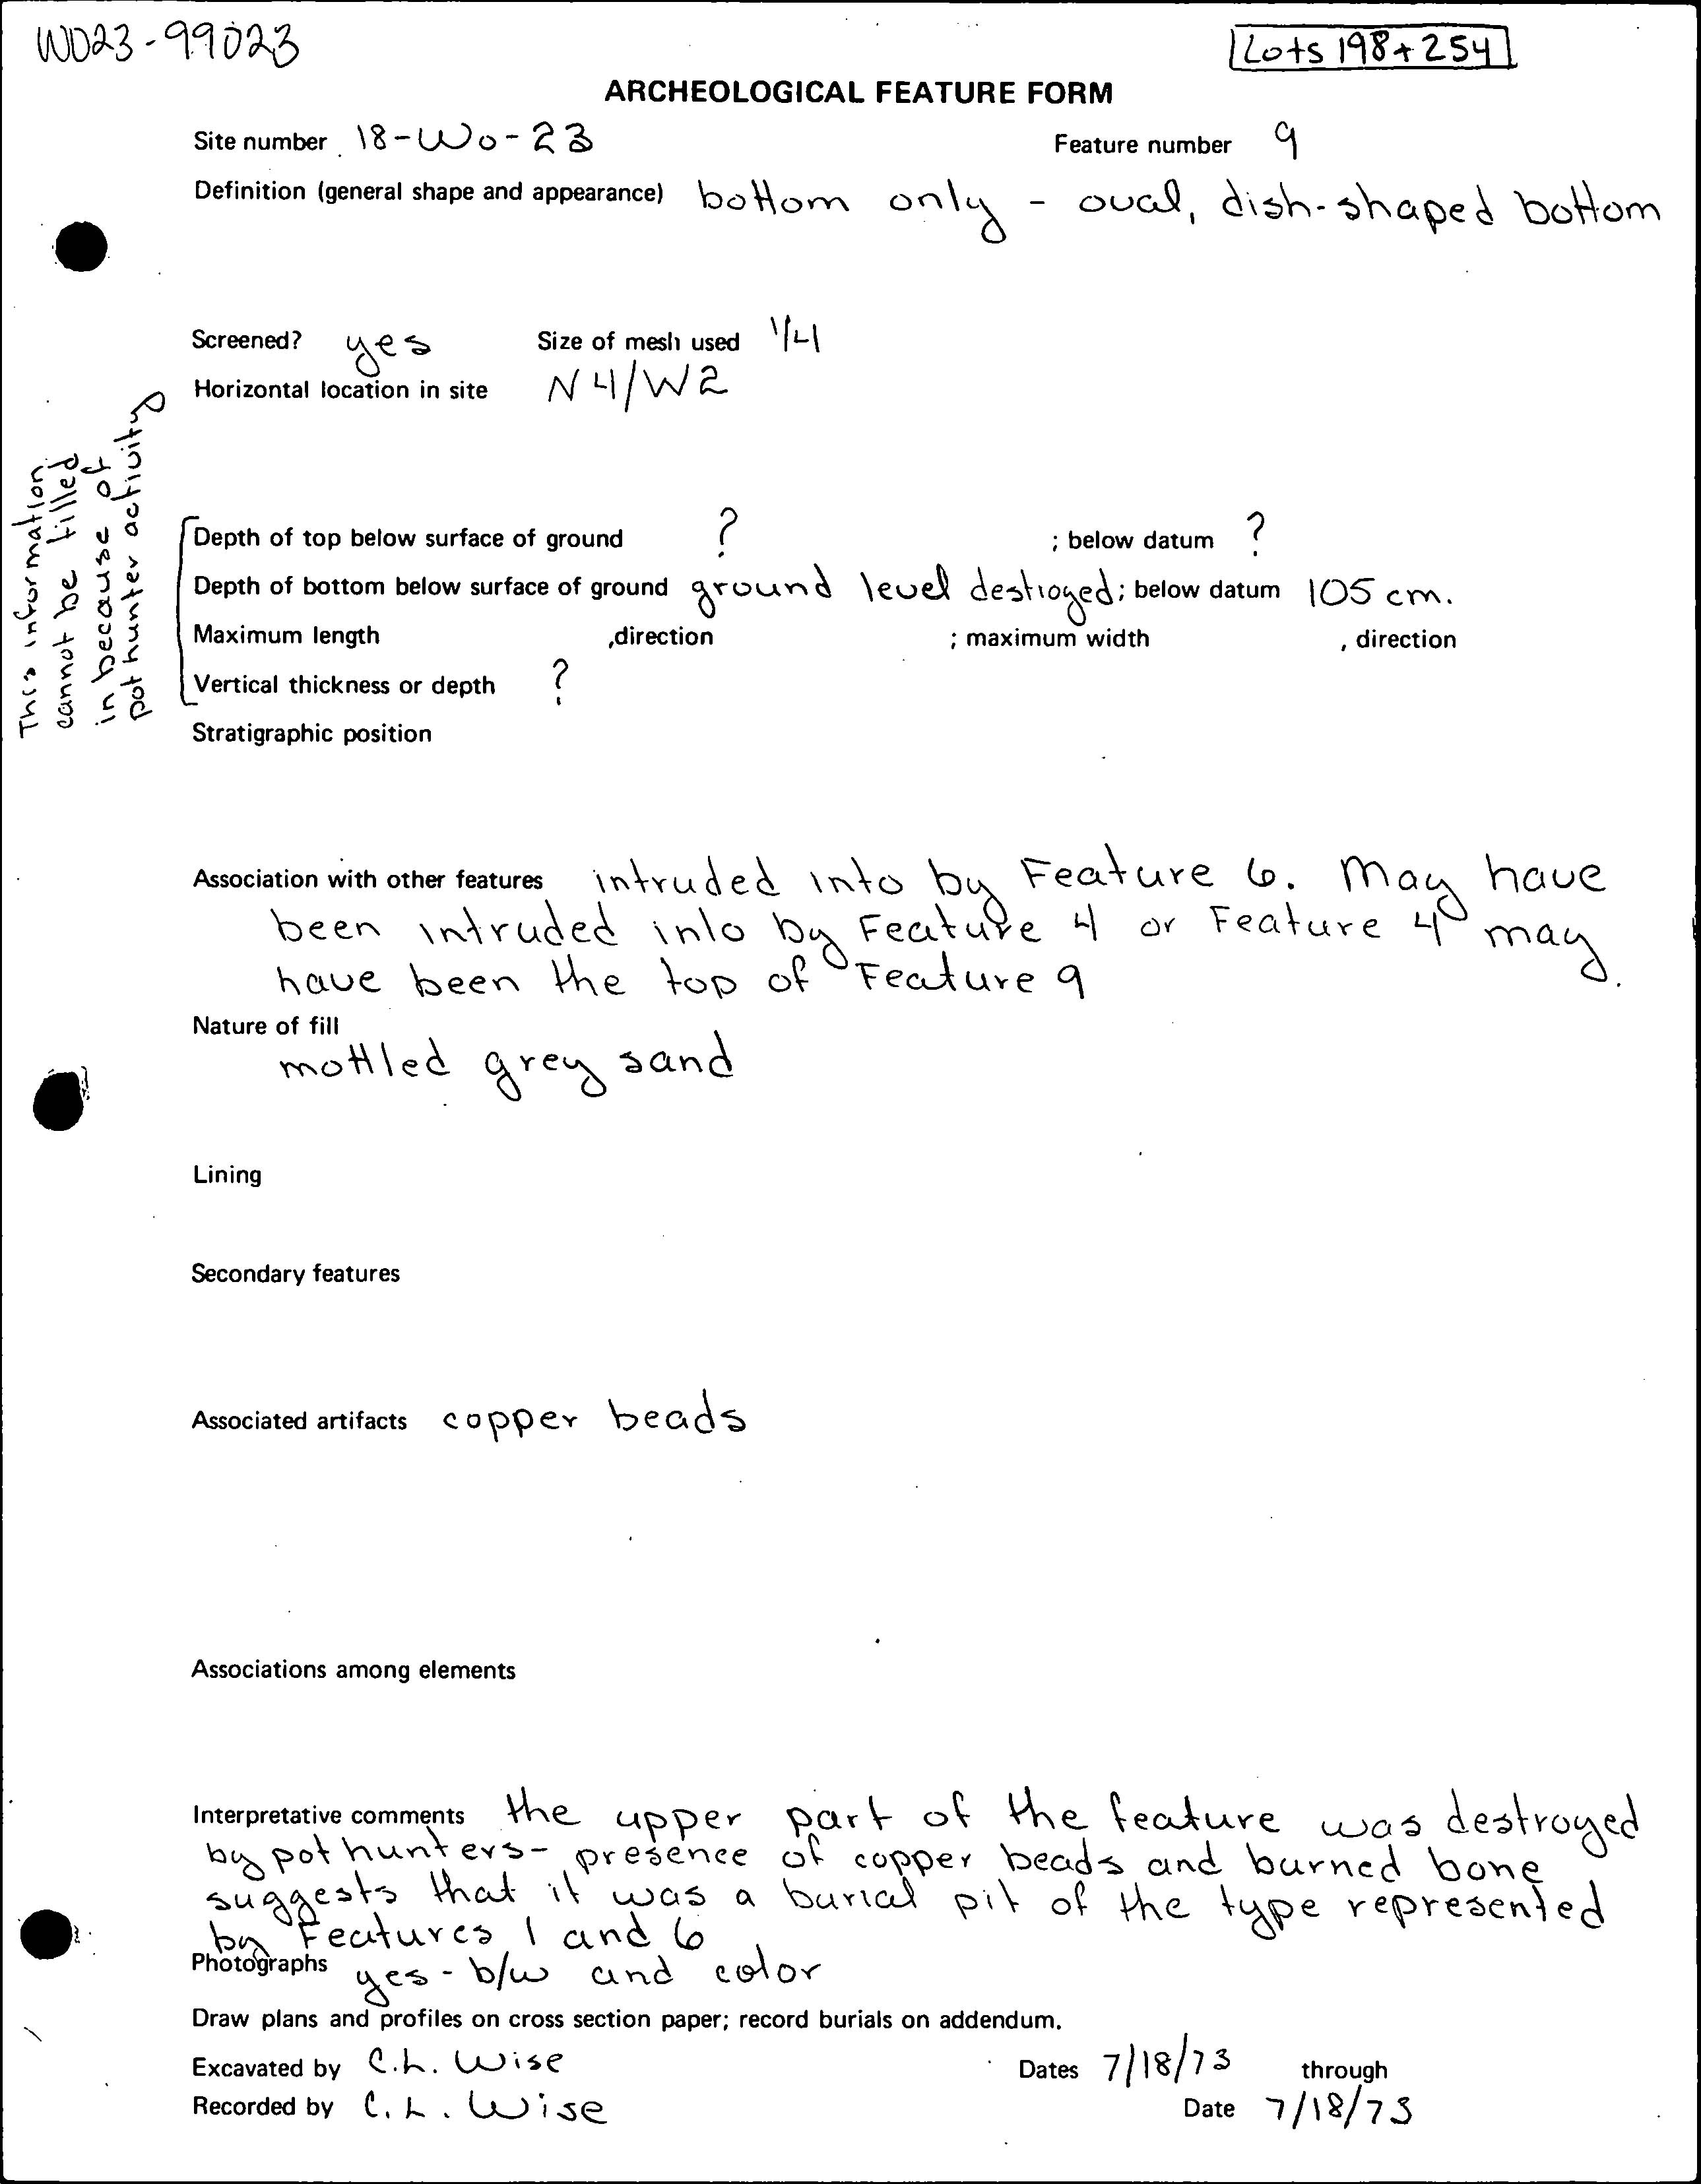 WO23-99023
Lots 198+254
ARCHEOLOGICAL FEATURE FORM
Site number 18-Wo-23 Feature number 9
Definition (general shape and appearance) bottom only - oval, dish-shaped bottom
Screened? yes Size of mesh used 1/4
Horizontal location in site N4/W2
This information
cannot be filled
in because of
pothunter activity
Depth of top below surface of ground ? ; below datum ?
Depth of bottom below surface of ground ground level destroyed; below datum 105 cm.
Maximum length ,direction ; maximum width , direction
Vertical thickness or depth ?
Stratigraphic position
Association with other features intruded into by Feature 6. May have
been intruded into by Feature 4 or Feature 4 may
have been the top of Feature 9
Nature of fill
mottled grey sand
Lining
Secondary features
Associated artifacts copper beads
Associations among elements
Interpretative comments the upper part of the feature was destroyed
by pothunters- presence of copper beads and burned bone
suggests that it was a burial pit of the type represented
by Features 1 and 6
Photographs yes - b/w and color
Draw plans and profiles on cross section paper; record burials on addendum.
Excavated by C.L. Wise Dates 7/18/73 through
Recorded by C.L. Wise Date 7/18/73